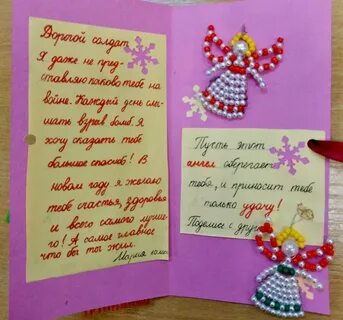 Дорогой солдат
Я даже не пред-
ставляю каково тебе на
войне. Каждый день слы-
шать взрыв бомб. Я
хочу сказать тебе
большое спасибо! В
новом году я желаю
тебе счастья, здоровья
и всего самого лучше-
го! А самое главное
что бы ты жил.
Мария
Пусть этот
ангел оберегает
тебя, и приносит тебе
только удачу!
Поделись с друг